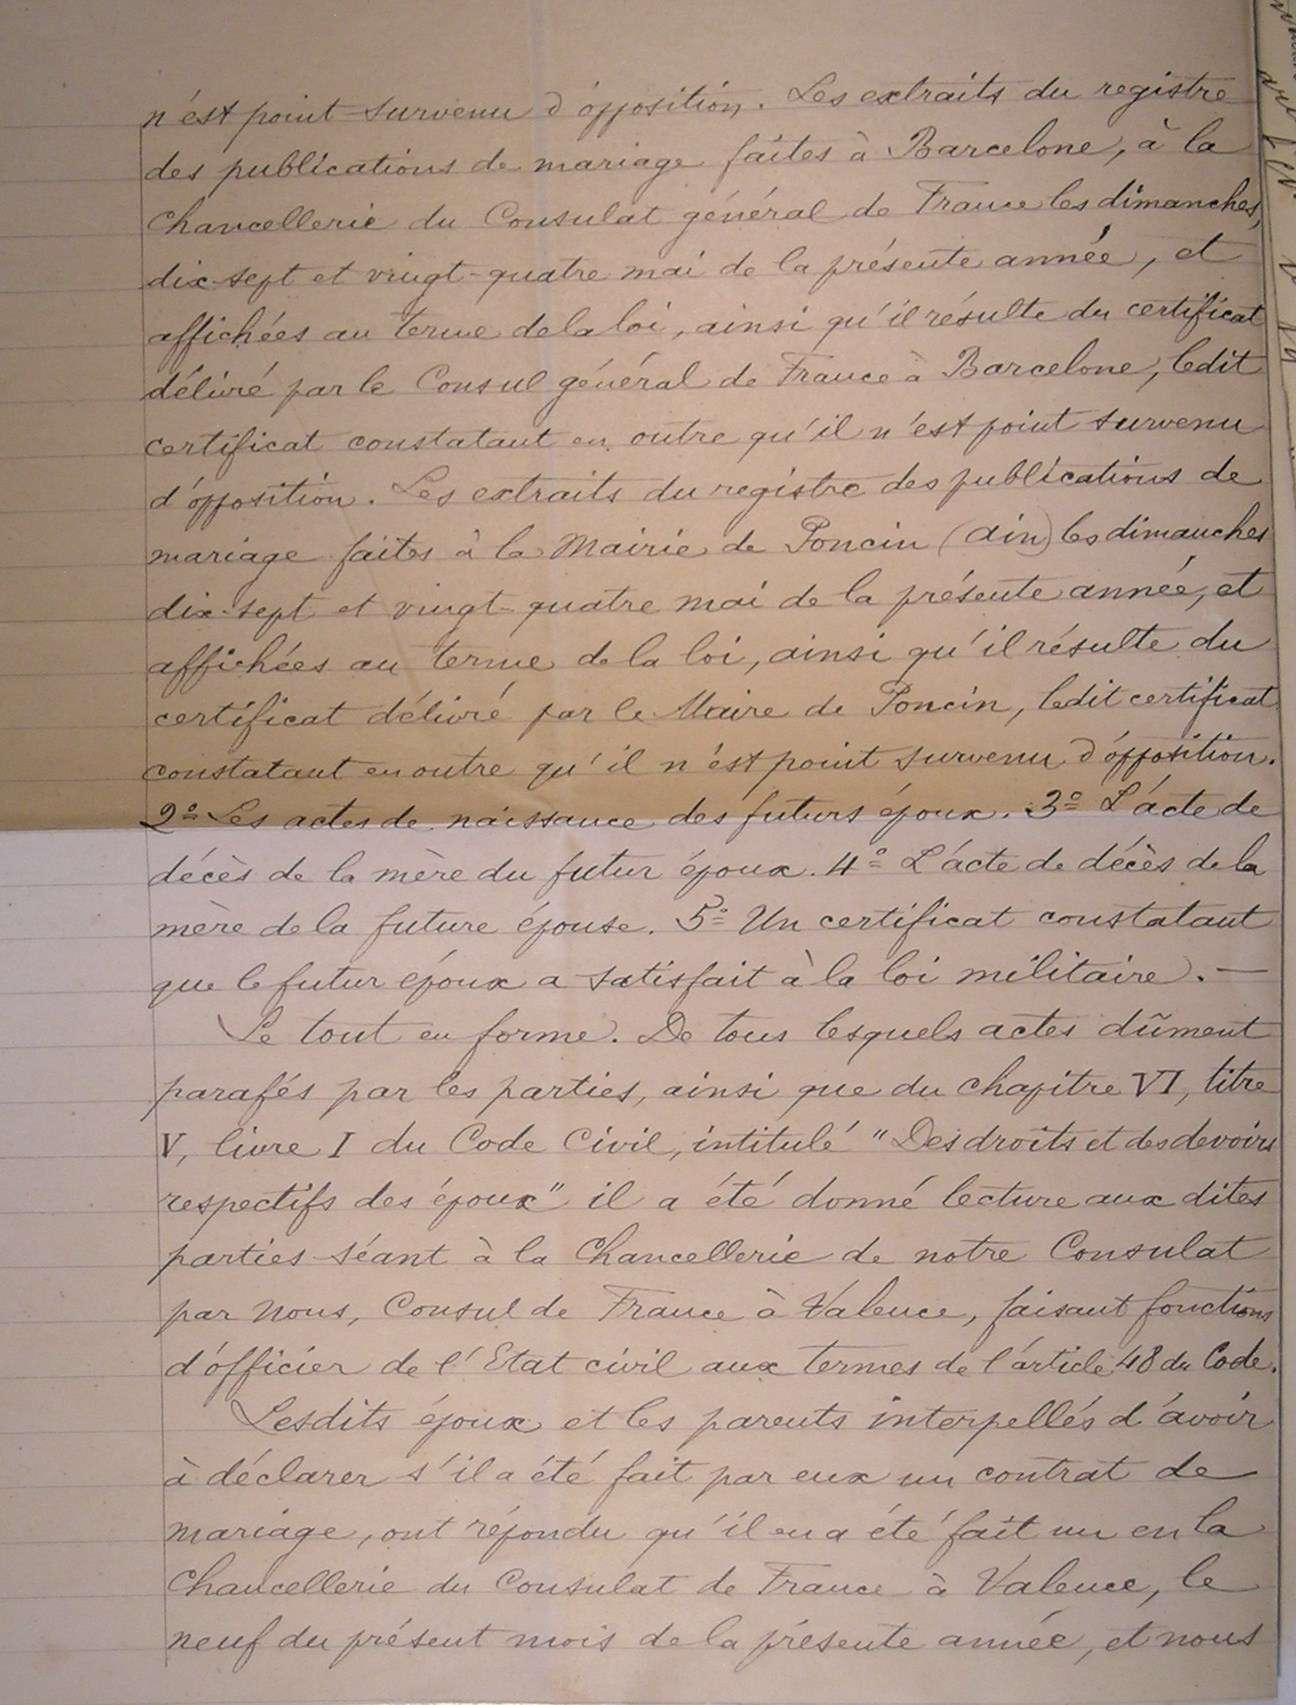 n'est point survenu d'opposition. Les extraits du registre
des publications de mariage faites à Barcelone, à la
Chancellerie du Consulat général de France les dimanches,
dix-sept et vingt-quatre mai de la présente année, et
affichées au terme de la loi, ainsi qu'il résulte du certificat
délivré par le Consul général de France à Barcelone, ledit
certificat constatant en outre qu'il n'est point survenu
d'opposition. Les extraits du registre des publications de
mariage faites à la Mairie de Poncin (Ain) les dimanches
dix-sept et vingt-quatre mai de la présente année, et
affichées au terme de la loi, ainsi qu'il résulte du
certificat délivré par le Maire de Poncin, ledit certificat
constatant en outre qu'il n'est point survenu d'opposition.
2º Les actes de naissance des futurs époux. 3º L'acte de
décès de la mère du futur époux. 4º L'acte de décès de la
mère de la future épouse. 5º Un certificat constatant
que le futur époux a satisfait à la loi militaire. —
Le tout en forme. De tous lesquels actes dûment
parafés par les parties, ainsi que du chapitre VI, titre
V, livre I du Code Civil, intitulé "Des droits et des devoirs
respectifs des époux" il a été donné lecture aux dites
parties séant à la Chancellerie de notre Consulat
par Nous, Consul de France à Valence, faisant fonctions
d'officier de l'Etat civil aux termes de l'article 48 du Code.
Lesdits époux et les parents interpellés d'avoir
à déclarer s'il a été fait par eux un contrat de
mariage, ont répondu qu'il en a été fait un en la
Chancellerie du Consulat de France à Valence, le
neuf du présent mois de la présente année, et nous